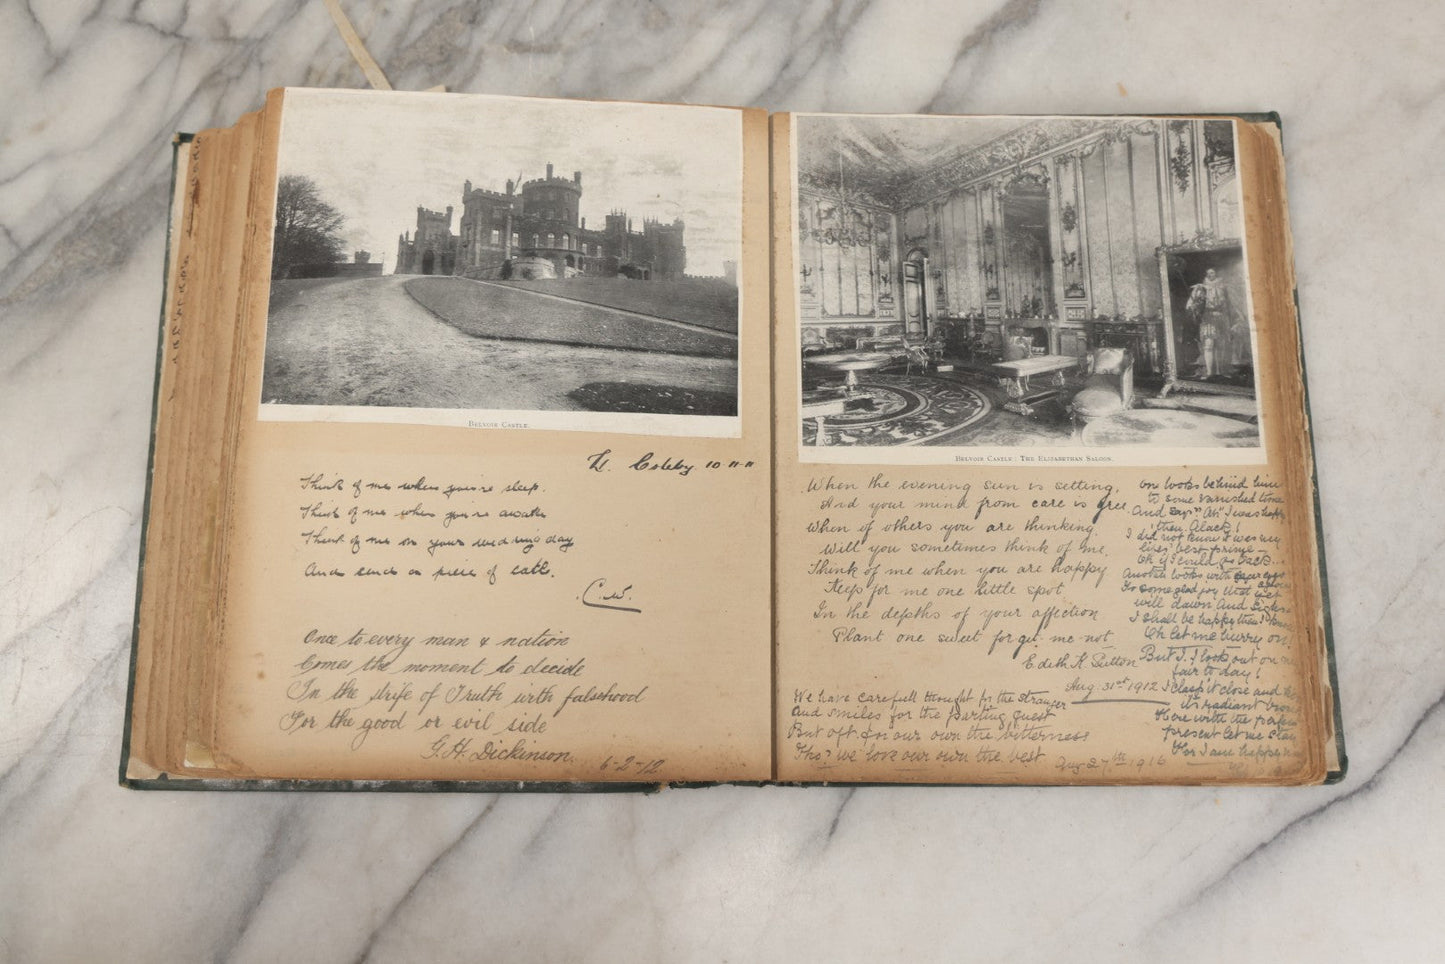 BELVOIR CASTLE.
Coleby 10-11-11
Think of me when you're sleep.
Think of me when you're awake
Think of me on your wedding day
And send a piece of cake.
C.W.
Once to every man & nation
Comes the moment to decide
In the strife of Truth with falsehood
For the good or evil side
G. H. Dickinson.
6-2-12.
BELVOIR CASTLE: THE ELIZABETHAN SALOON.
When the evening sun is setting,
And your mind from care is free
When of others you are thinking
Will you sometimes think of me.
Think of me when you are happy
Keep for me one little spot
In the depths of your affection
Plant one sweet forget-me-not
Edith K. Sutton
Aug: 31st 1912
We have carefull thought for the stranger
And smiles for the parting guest
But oft for our own the bitterness
Tho' we love our own the best
Aug 27th 1916
One looks behind him
to some vanished time
And says "Ah" I was happy
then Alack!
I did not know it was my
lifes' best prime—
Oh if I could go back...
Another looks with eager eyes
To some glad joy that
will dawn And
I shall be happy then!
Oh let me hurry on!
But I. I look out on
fair to day!
I clasp it close and
its radiant brow
Here with the
present let me stay
For I am happy now